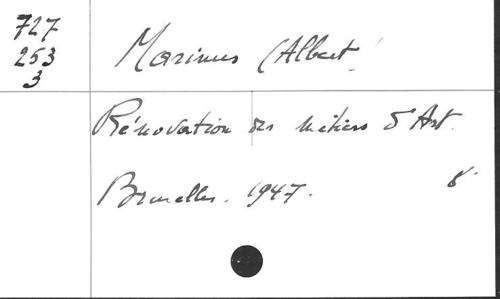 727
253
3
Marinus (Albert)
Rénovation des métiers d'Art.
Bruxelles. 1947. 8°